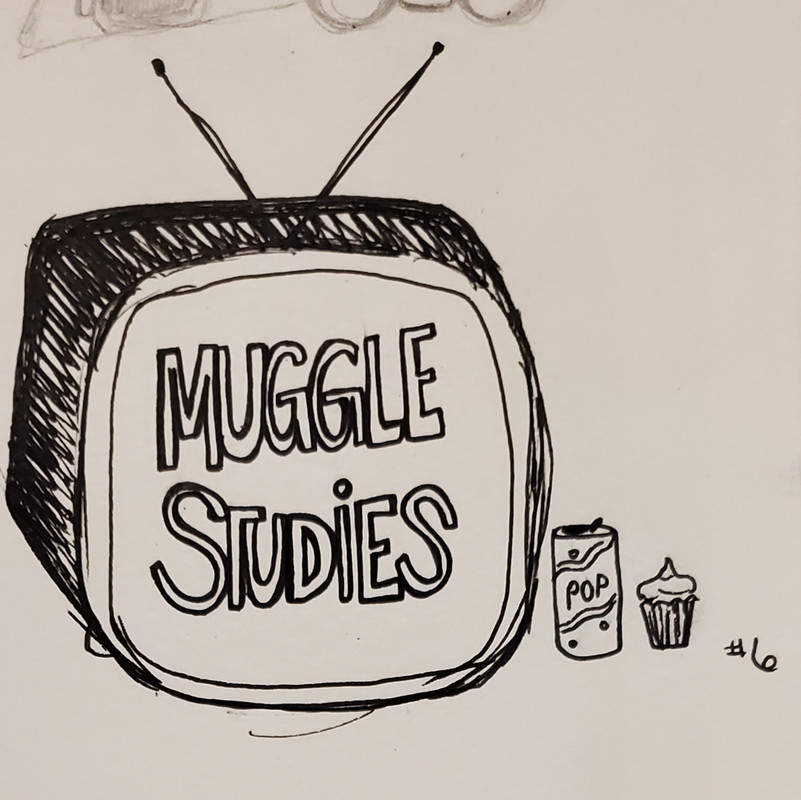 MUGGLE
STUDiES
POP
#6